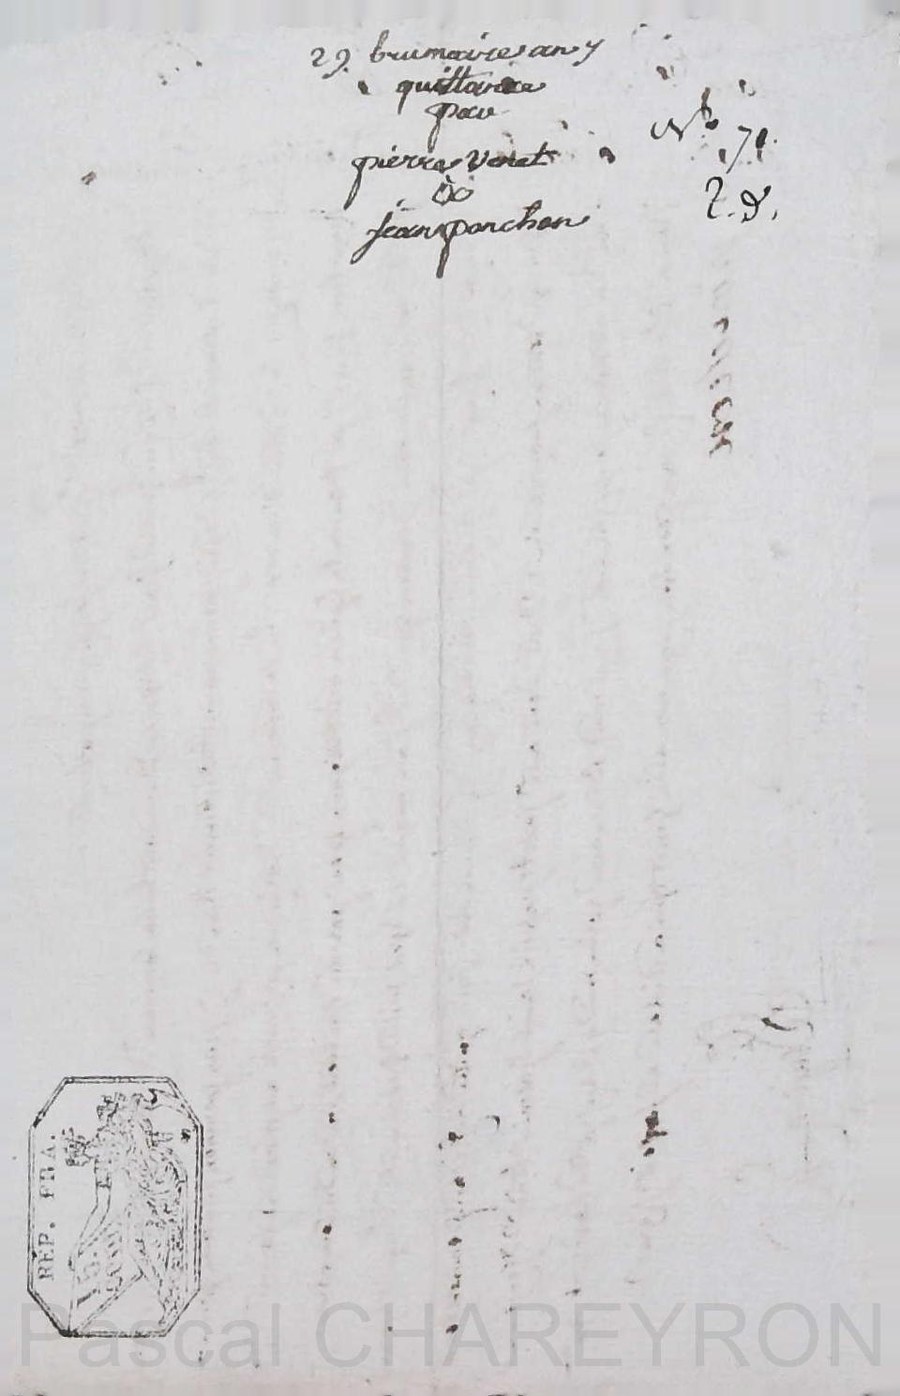 29 brumaire an 7
quittance
par
pierre Veret
à
jean ponchon
N° 71.
2. D.
REP. FRA.
Pascal CHAREYRON